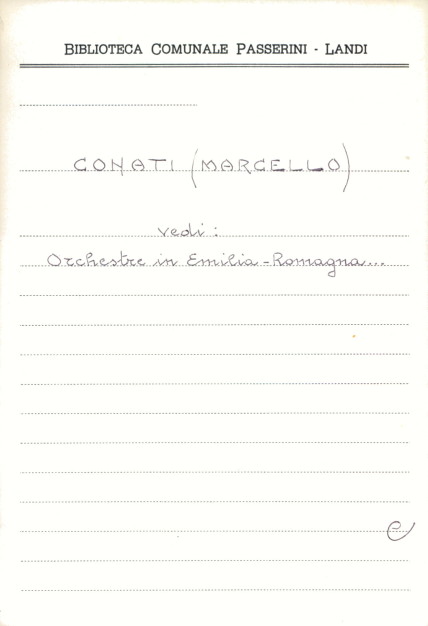 BIBLIOTECA COMUNALE PASSERINI - LANDI
CONATI (MARCELLO)
vedi:
Orchestre in Emilia-Romagna...
e